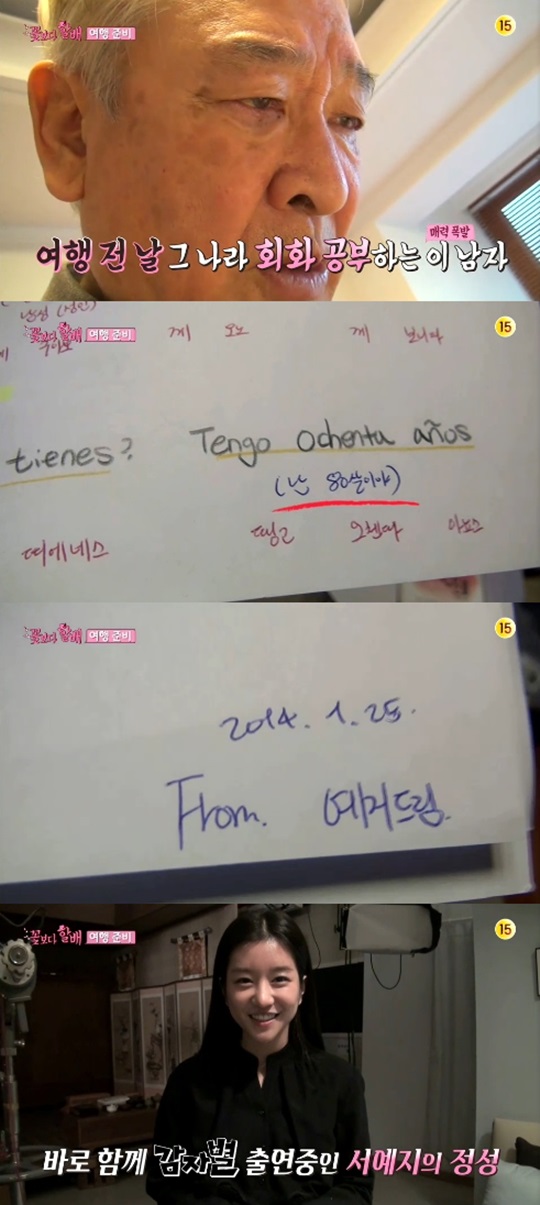 꽃보다 할배 여행 준비
15
매력 폭발
여행 전 날 그 나라 회화 공부하는 이 남자
꽃보다 할배 여행 준비
15
께 오노 께 보니따
tienes? Tengo ochenta años
(난 80살이야)
띠에네스 땡고 오첸따 아뇨스
꽃보다 할배 여행 준비
15
2014. 1. 25.
From. 예지드림.
꽃보다 할배 여행 준비
15
바로 함께 감자별 출연중인 서예지의 정성